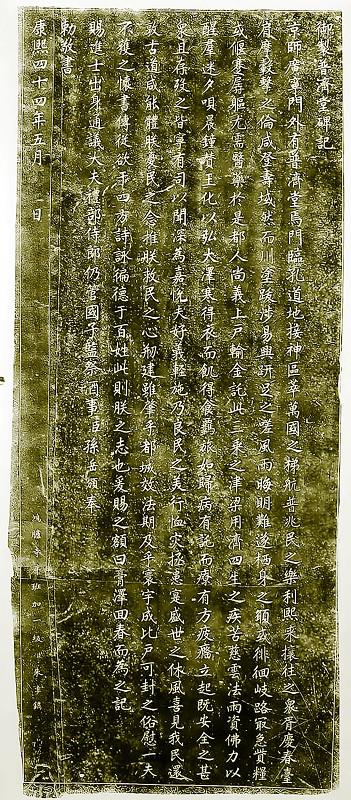 御製普濟堂碑記
京師廣寧門外有普濟堂焉門臨孔道地接神區萃萬國之梯航普兆民之樂利熙來攘往之衆胥慶春臺
轂擊之倫咸登壽域然而川塗跋涉易興跰之嗟風雨晦明難遂栖身之願或徘徊岐路取急貲糧
或偃蹇孱軀尤需醫藥於是都人尚義上戶輸金託此三乘之津梁用濟四生之疾苦慈雲法雨資佛力以
迷夕唄晨鐘贊王化以弘大澤寒得衣而飢得食羇旅如歸病有託而療有方疲癃立起既安全之甚
衆且存歿之皆享有司以聞深為嘉悅夫好義輕施乃良民之美行恤災拯患寔盛世之休風喜見我民還
敦古道咸能體朕愛民之念推朕救民之心刱建雖肇乎都城效法期及乎寰宇成比戶可封之俗慰一夫
不獲之懷書傳從欲乎四方詩詠徧德于百姓此則朕之志也爰賜之額曰膏澤回春而為之記
賜進士出身通議大夫禮部侍郎仍管國子監祭酒事臣孫岳頒奉
勅敬書
康熙四十四年五月 一日
鴻臚寺序班加一級臣朱圭鐫